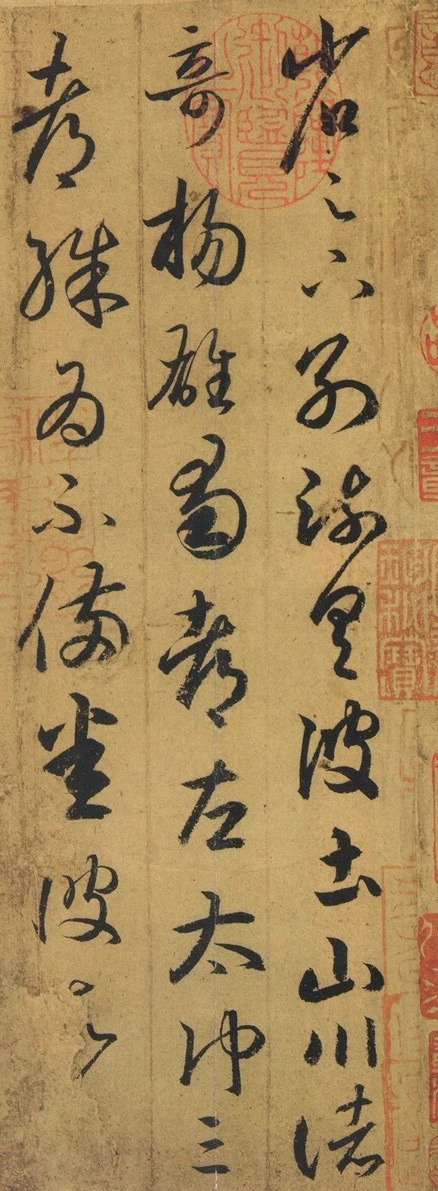 省足下別疏具彼土山川諸
奇楊雄蜀都左太沖三
都殊為不備悉彼故